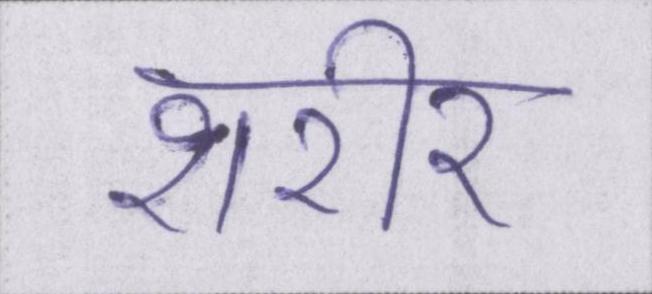 शरीर